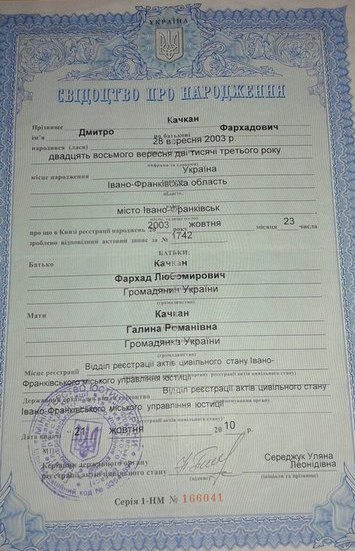 УКРАЇНА
СВІДОЦТВО ПРО НАРОДЖЕННЯ
Качкан
Прізвище
Дмитро Фархадович
ім'я по батькові
28 вересня 2003 р.
народився (лася)
двадцять восьмого вересня дві тисячі третього року
Україна
місце народження
Івано-Франківська область
місто Івано-Франківськ
2003 жовтня 23
про що в Книзі реєстрації народжень року місяця числа
1742
зроблено відповідний актовий запис за №
БАТЬКИ:
Батько Качкан
Фархад Любомирович
Громадянин України
(громадянство)
Мати Качкан
Галина Романівна
Громадянка України
(громадянство)
Місце реєстрації Відділ реєстрації актів цивільного стану Івано-
Франківського міського управління юстиції
Відділ реєстрації актів цивільного стану
Івано-Франківського міського управління юстиції
Дата видачі 21 жовтня 2010 р.
М.П.
Середжук Уляна
Леонідівна
Керівник державного органу
реєстрації актів цивільного стану (підпис)
Серія 1-НМ № 166041